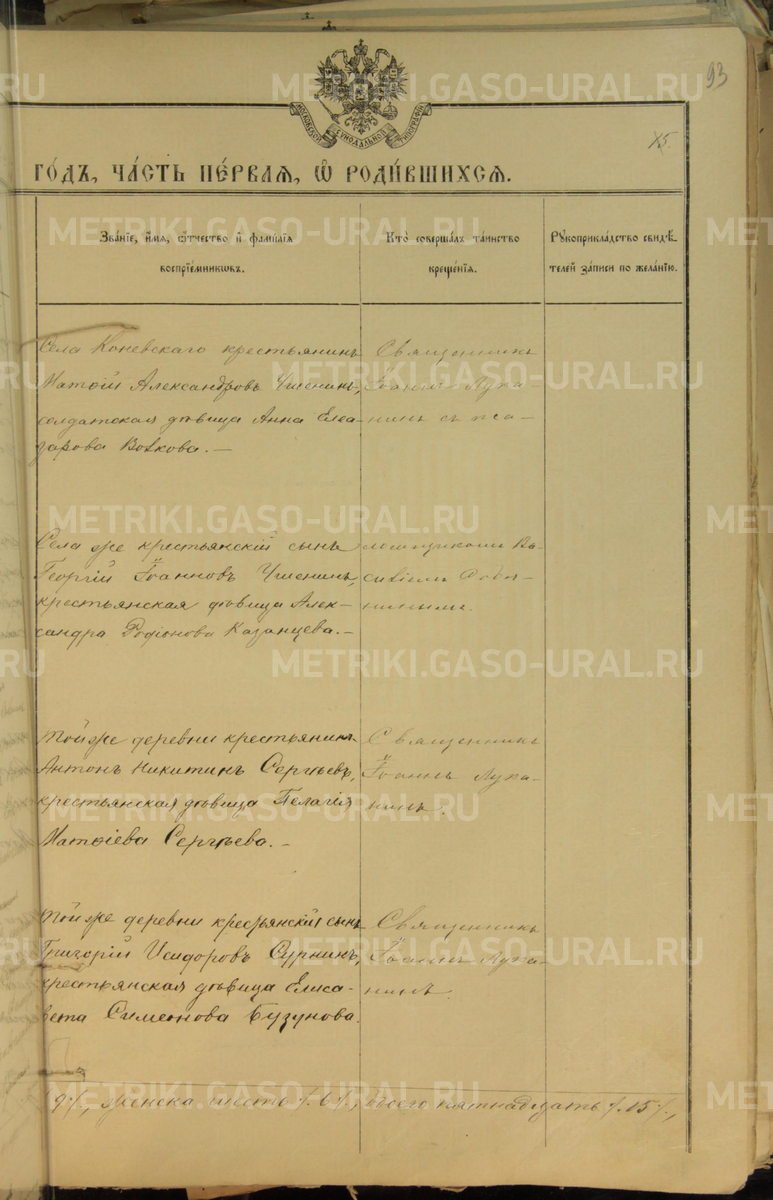 93
МОСКОВСКОЙ СѴНОДАЛЬНОЙ ТИПОГРАФІИ
ГО́ДЪ, ЧА́СТЬ ПЕ́РВАЯ, Ѽ РОДИ́ВШИХСЯ.
Зва́нїе, и҆́мя, ѻ҆́тчество и҆ фами́лїя
воспрїе́мникѡвъ.
Кто̀ соверша́лъ та́инство
креще́нїя.
Рꙋкоприкла́дство свидѣ́-
телей за́писи по жела́нїю.
Села Коневскаго крестьянинъ
Матѳій Александровъ Чисенинъ,
солдатская дѣвица Анна Елеа-
зарова Волкова. —
Священникъ
Іоаннъ Лука-
нинъ съ пса-
Села же крестьянскій сынъ
Георгій Іоанновъ Чисенинъ,
крестьянская дѣвица Алек-
сандра Родіонова Казанцева. —
ломщикомъ Ва-
силіемъ
Той же деревни крестьянинъ
Антонъ Никитинъ Сергѣевъ,
крестьянская дѣвица Пелагія
Матѳіева Сергѣева. —
Священникъ
Іоаннъ Лука-
нинъ.
Той же деревни крестьянскій сынъ
Григорій Исидоровъ Суринъ,
крестьянская дѣвица Елиса-
вета Симеонова Бузунова.
Священникъ
Іоаннъ Лука-
нинъ.
/9/, женска шесть /6/, всего пятнадцать /15/,
METRIKI.GASO-URAL.RU